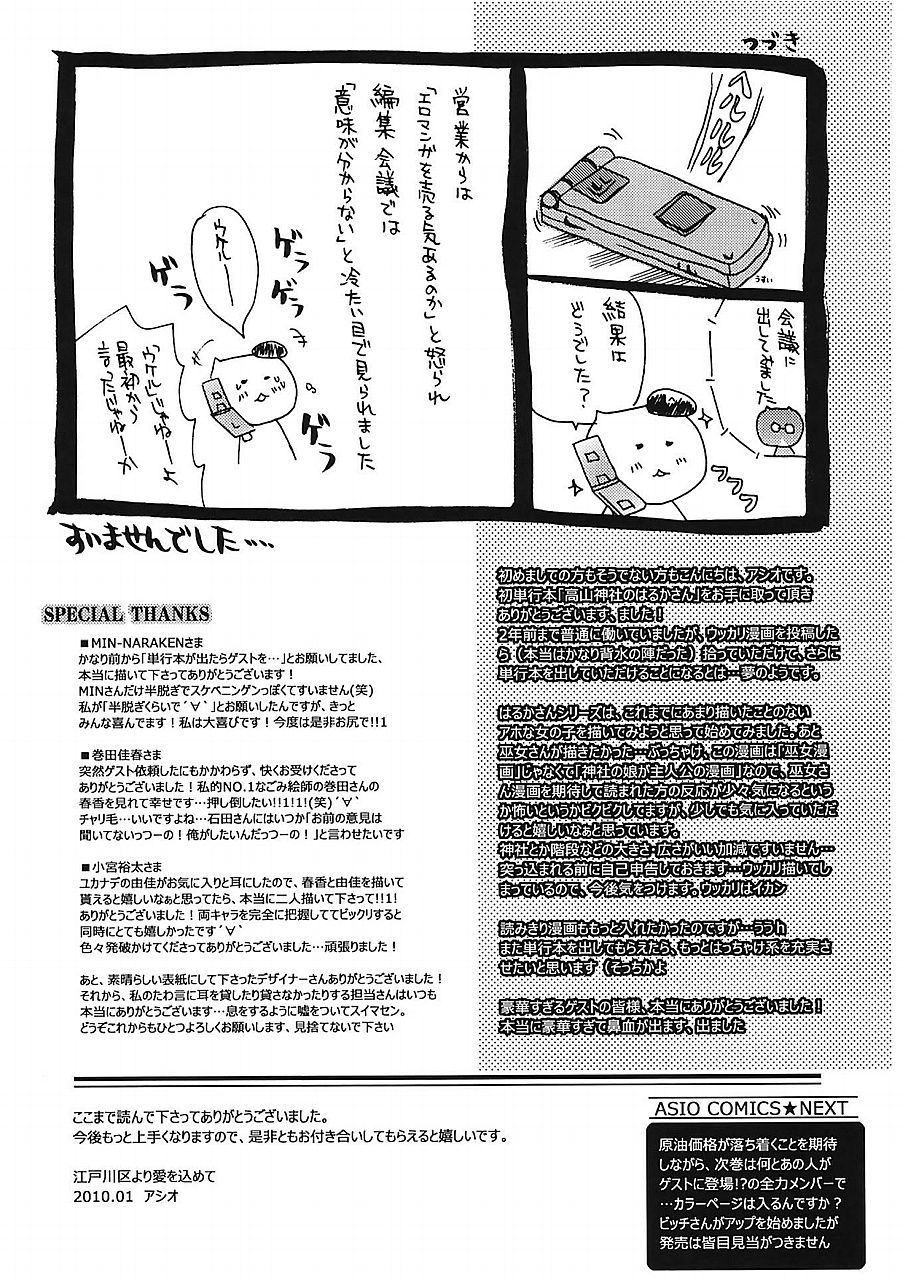 つづき
ヘルルル
うすい
会議に
出してみました
結果は
どうでした？
つつつ
営業からは
「エロマンガを売る気あるのか」と怒られ
編集会議では
「意味が分からない」と冷たい目で見られました
ウケルーー
ゲラ
ゲラ
ゲラ
ゲラ
ゲラ
「ウケル」じゃねーよ
最初から
言ったじゃねーか
すいませんでした・・・・
初めましての方もそうでない方もこんにちは、アシオです。
初単行本「高山神社のはるかさん」をお手に取って頂き
ありがとうございます、ました！
2年前まで普通に働いていましたが、ウッカリ漫画を投稿した
ら（本当はかなり背水の陣だった）拾っていただけて、さらに
単行本を出していただけることになるとは…夢のようです。
はるかさんシリーズは、これまでにあまり描いたことのない
アホな女の子を描いてみようと思って始めてみました。あと
巫女さんが描きたかった…ぶっちゃけ、この漫画は「巫女漫
画」じゃなくて「神社の娘が主人公の漫画」なので、巫女さ
ん漫画を期待して読まれた方の反応が少々気になるという
か怖いというかビクビクしてますが、少しでも気に入っていただ
けると嬉しいなぁと思っています。
神社とか階段などの大きさ・広さがいい加減ですいません…
突っ込まれる前に自己申告しておきます…ウッカリ描いてし
まっているので、今後気をつけます。ウッカリはイカン
読みきり漫画ももっと入れたかったのですが…ううh
また単行本を出してもらえたら、もっとはっちゃけ系を充実さ
せたいと思います（そっちかよ
豪華すぎるゲストの皆様、本当にありがとうございました！
本当に豪華すぎて鼻血が出ます、出ました
SPECIAL THANKS
■MIN-NARAKENさま
かなり前から「単行本が出たらゲストを…」とお願いしてました、
本当に描いて下さってありがとうございます！
MINさんだけ半脱ぎでスケベニンゲンっぽくてすいません(笑)
私が「半脱ぎぐらいで´∀`」とお願いしたんですが、きっと
みんな喜んでます！私は大喜びです！今度は是非お尻で!!1
■巻田佳春さま
突然ゲスト依頼したにもかかわらず、快くお受けくださって
ありがとうございました！私的NO.1なごみ絵師の巻田さんの
春香を見れて幸せです…押し倒したい!!1!1!(笑)´∀`
チャリ毛…いいですよね…石田さんにはいつか「お前の意見は
聞いてないっつーの！俺がしたいんだっつーの！」と言わせたいです
■小宮裕太さま
ユカナデの由佳がお気に入りと耳にしたので、春香と由佳を描いて
貰えると嬉しいなぁと思ってたら、本当に二人描いて下さって!!1!
ありがとうございました！両キャラを完全に把握しててビックリすると
同時にとても嬉しかったです´∀`
色々発破かけてくださってありがとうございました…頑張りました！
あと、素晴らしい表紙にして下さったデザイナーさんありがとうございました！
それから、私のたわ言に耳を貸したり貸さなかったりする担当さんはいつも
本当にありがとうございます…息をするように嘘をついてスイマセン。
どうぞこれからもひとつよろしくお願いします、見捨てないで下さい
ここまで読んで下さってありがとうございました。
今後もっと上手くなりますので、是非ともお付き合いしてもらえると嬉しいです。
江戸川区より愛を込めて
2010.01 アシオ
ASIO COMICS★NEXT
原油価格が落ち着くことを期待
しながら、次巻は何とあの人が
ゲストに登場!?の全力メンバーで
…カラーページは入るんですか？
ビッチさんがアップを始めましたが
発売は皆目見当がつきません